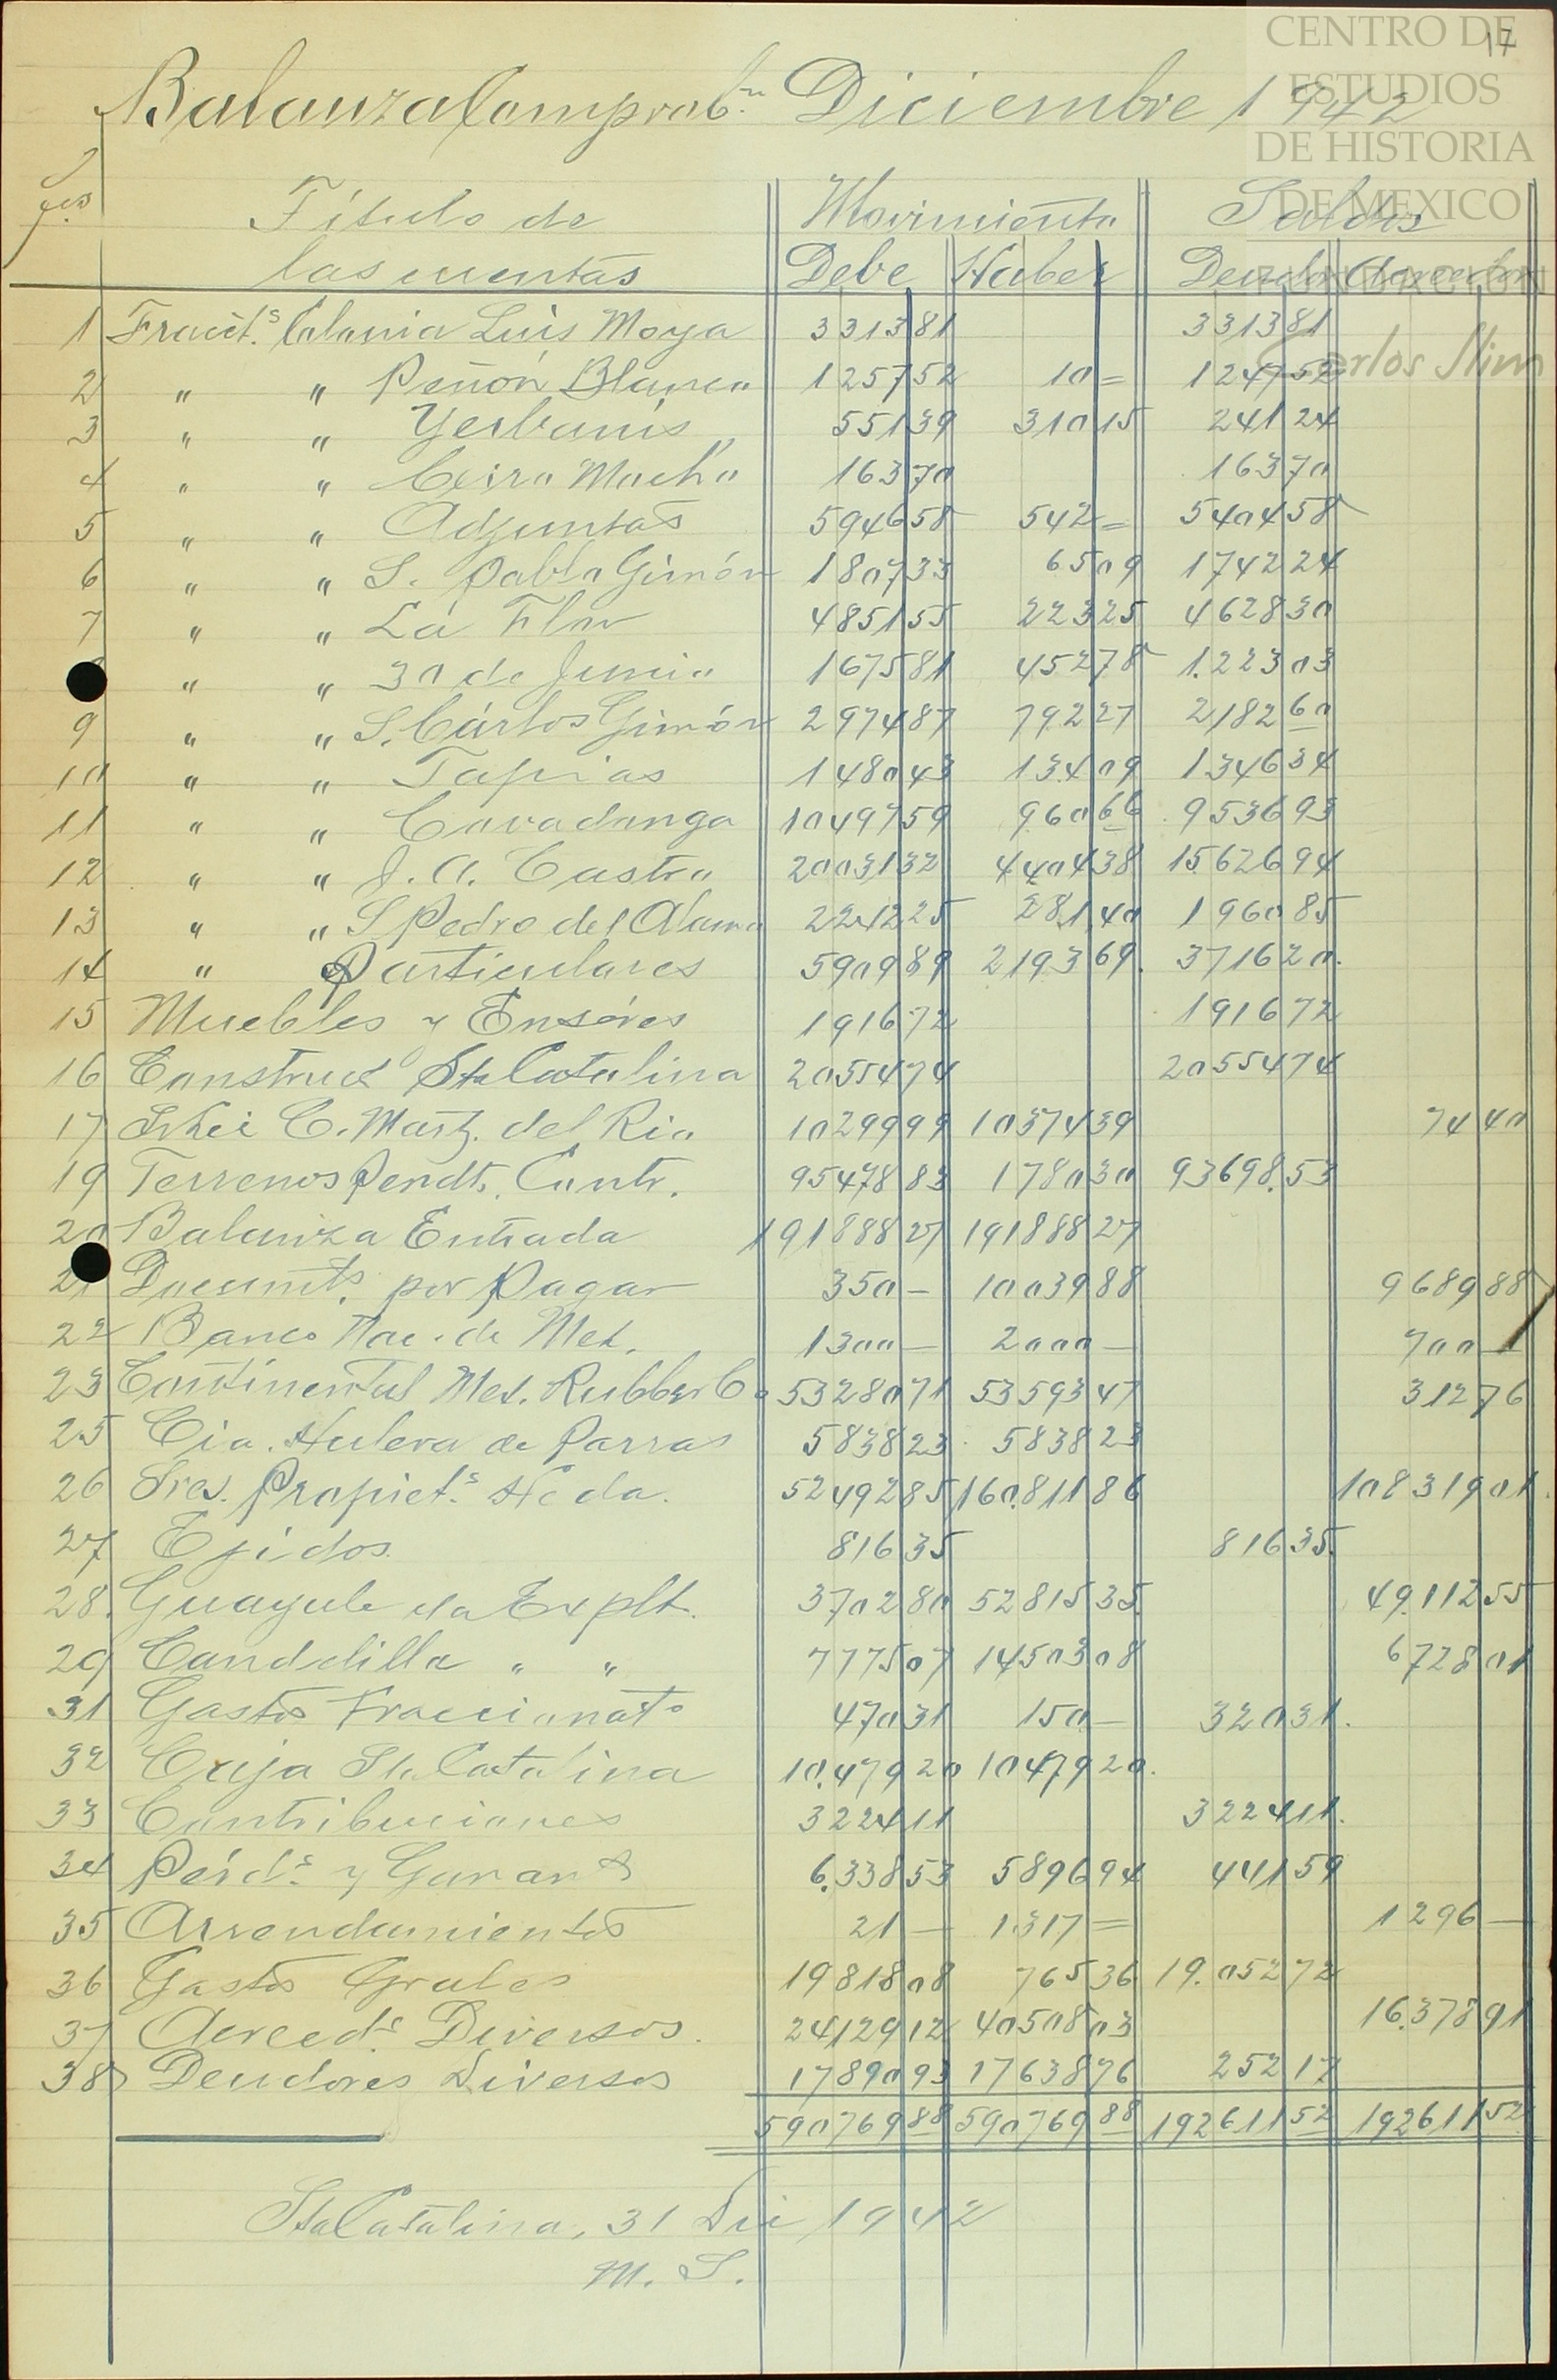 CENTRO DE
ESTUDIOS
DE HISTORIA
DE MEXICO
FUNDACION
Carlos Slim
17
Balanza Comprobn. Diciembre 1942
Título de Movimiento Saldos
las cuentas Debe Haber Deudor Acreedor
1 Fracts. Colonia Luis Moya 3313 81 3313 81
2 " " Peñón Blanco 1257 52 10 = 1247 52
3 " " Yerbanis 551 39 310 15 241 24
4 " " Cerro Mocho 163 70 163 70
5 " " Adjuntas 5946 58 542 = 5404 58
6 " " S. Pablo Gimón 1807 33 65 09 1742 24
7 " " La Flor 4851 55 223 25 4628 30
" " 30 de Junio 1675 81 452 78 1.223 03
9 " " S. Cárlos Gimón 2974 87 792 27 2182 60
10 " " Tapias 1480 43 134 09 1346 34
11 " " Covadonga 10497 59 960 66 9536 93
12 " " J. A. Castro 20031 32 4404 38 15626 94
13 " " S Pedro del Alamo 2242 25 281 40 1960 85
14 " Particulares 5909 89 2193 69. 3716 20.
15 Muebles y Enséres 1916 72 1916 72
16 Construcs Sta Catalina 20554 74 20554 74
17 Srkei C. Martz. del Rio 10299 99 10374 39 74 40
19 Terrenos Pendts. Contr. 95478 83 1780 30 93698.53
20 Balanza Entrada 191888 27 191888 27
21 Documts. por Pagar 350 — 10039 88 9689 88
22 Banco Nac. de Mex. 1300 — 2000 — 700 —
23 Continental Mex. Rubber Co 53280 71 53593 47 312 76
25 Cia. Hulera de Parras 5838 23 5838 23
26 Sres. Propiets. Hcda. 52492 85 160.811 86 108319 01.
27 Ejidos 816 35 816 35.
28. Guayule da Explt. 3702 80 52815 35. 49.112 55
29 Candelilla " " 7775 07 14503 08 6728 01
31 Gastos Fraccionato 470 31 150 — 320 31.
32 Caja Sta Catalina 10.479 20 10479 20.
33 Contribuciones 3224 11 3224 11.
34 Pérds. y Ganans 6.338 53 5896 94 441 59
35 Arrendamientos 21 — 1.317 = 1296 —
36 Gastos Grales 19818 08 765 36 19.052 72
37 Acreeds. Diversos. 24129 12 40508 03 16.378 91
38 Deudores Diversos 17890 93 17638 76 252 17
590769 88 590769 88 192611 52 192611 52
Sta Catalina, 31 Dic 1942
M. S.